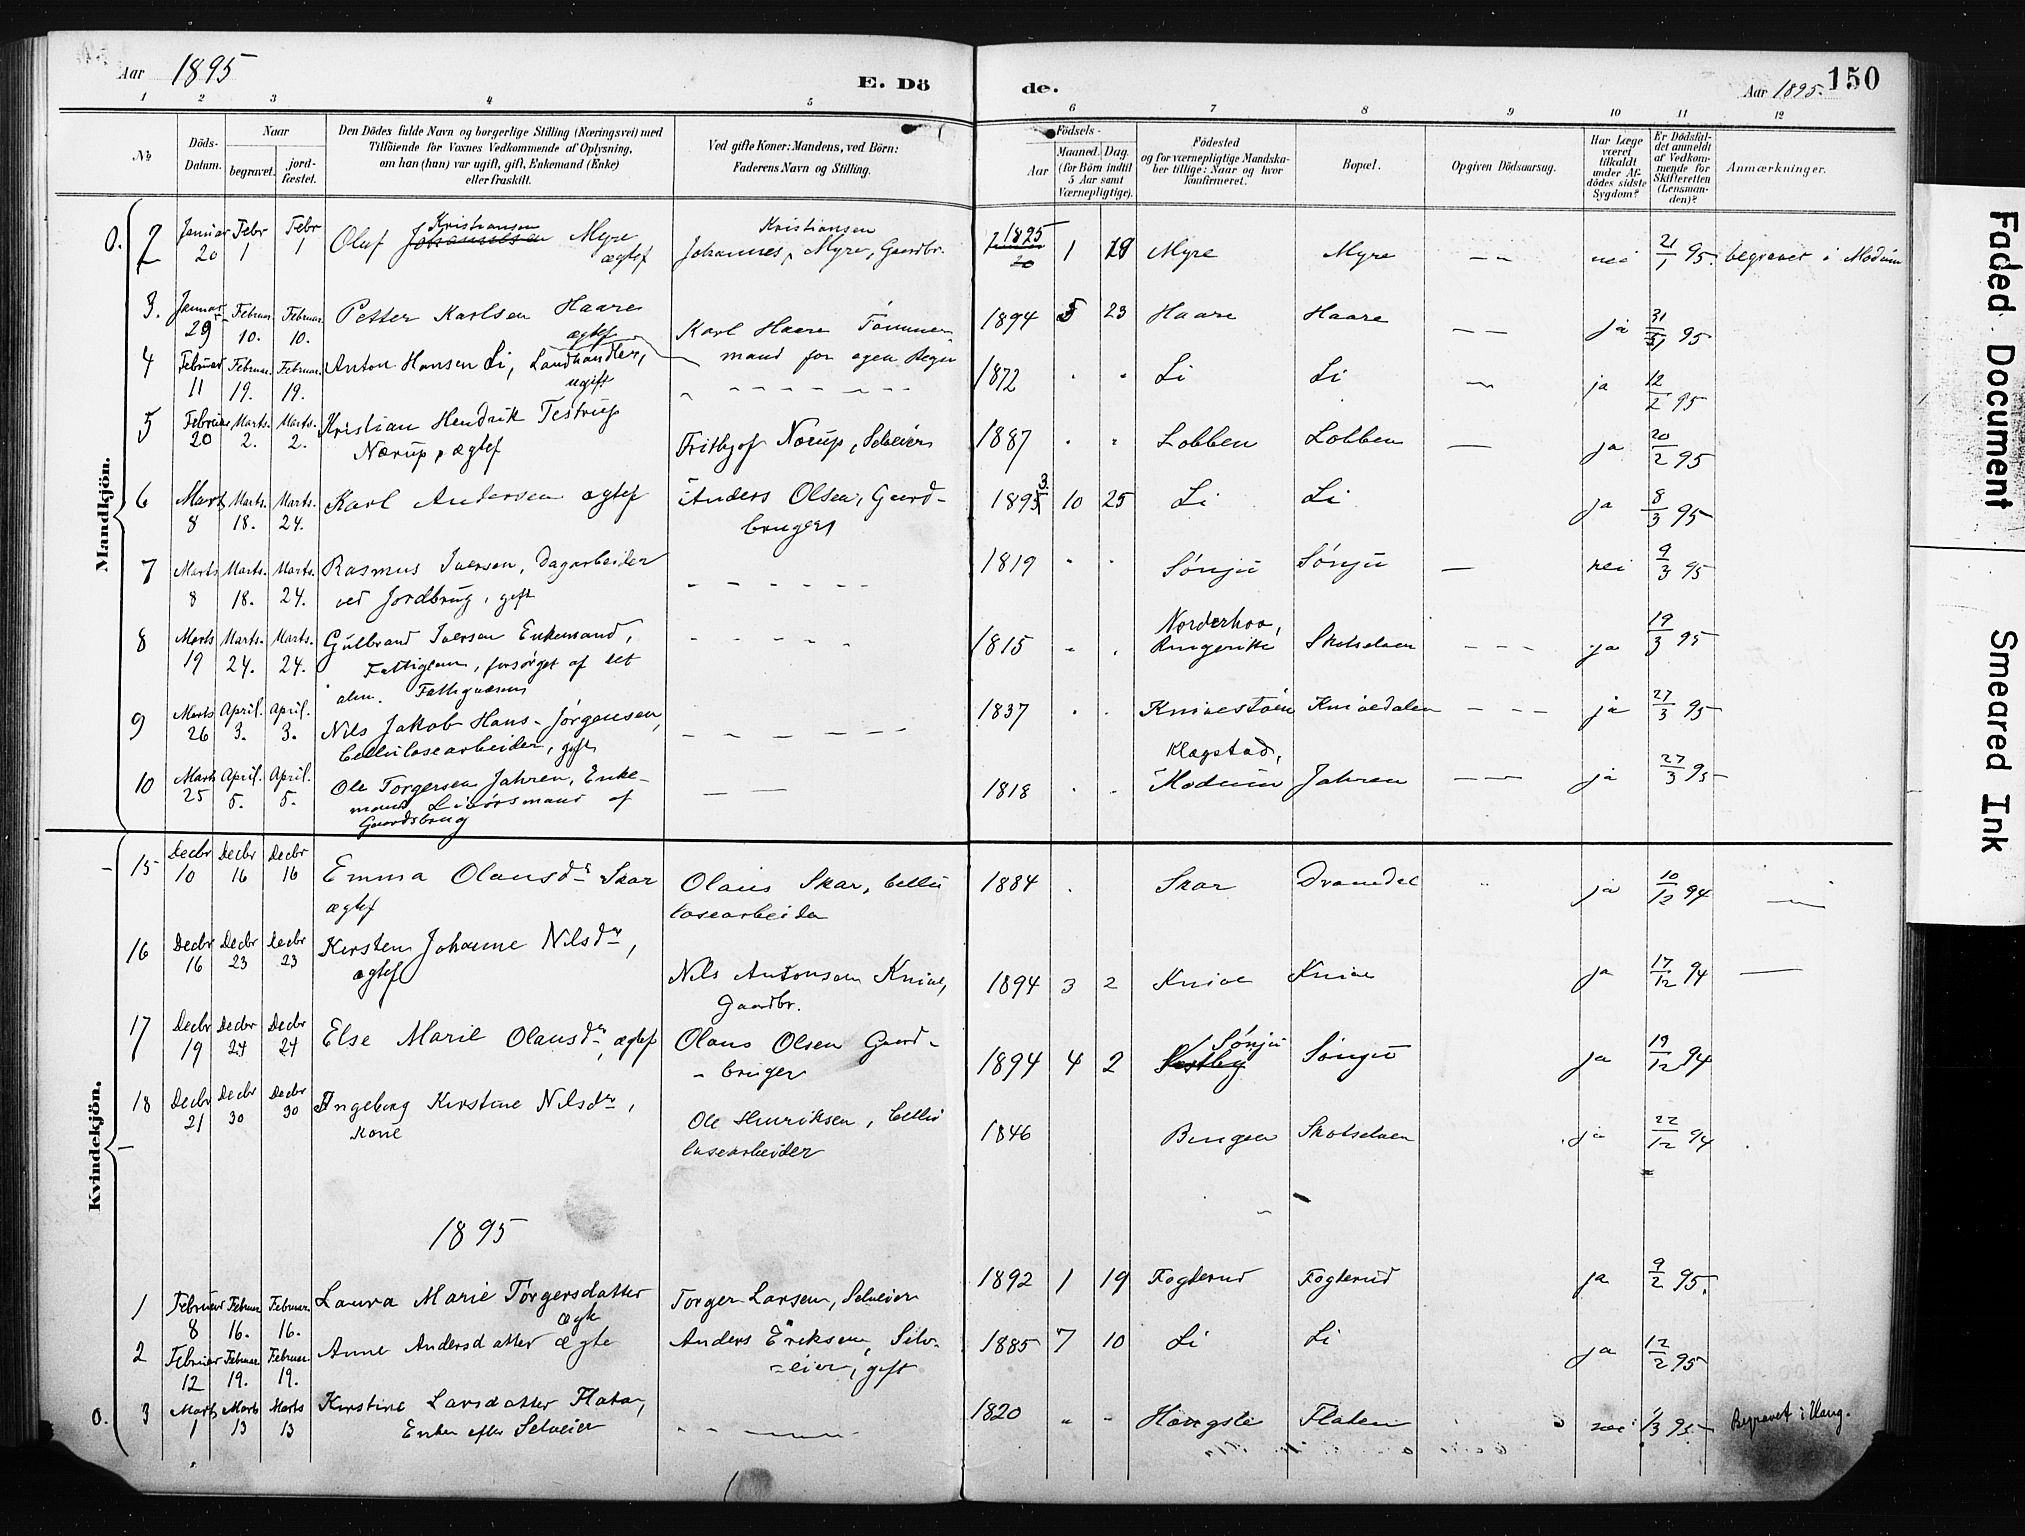 Aar 1895
E. Dö
de.
Aar 1895.
150
1 2 3 4 5 6 7 8 9 10 11 12
No
Döds-
Datum.
Naar
begravet.
jord-
fæstet.
Den Dödes fulde Navn og borgerlige Stilling (Næringsvei) med
Tilföiende for Voxnes Vedkommende af Oplysning,
om han (hun) var ugift, gift, Enkemand (Enke)
eller fraskilt.
Ved gifte Koner: Mandens, ved Børn:
Faderens Navn og Stilling.
Födsels-
Aar
Maaned.
Dag.
(for Börn indtil
5 Aar samt
Værnepligtige).
Födested
og for værnepligtige Mandska-
ber tillige: Naar og hvor
konfirmeret.
Bopæl.
Opgiven Dödsaarsag.
Har Læge
været
tilkaldt
under Af-
dödes sidste
Sygdom?
Er Dödsfal-
det anmeldt
af Vedkom-
mende for
Skifteretten
(Lensman-
den)?
Anmærkninger.
Mandkjön.
O. 2 Januar 20 Febr 1 Febr 1 Oluf Johannesen Kristiansen Myre ægtef Johannes Kristiansen Myre, Gaardbr. 1825 1 Myre Myre — — nei 21/1 95. begravet i Modum
3. Januar 29 Februar 10. Februar 10. Petter Karlsen Haare ægtef Karl Haare Tømmer-
mand for egen Regn 1894 5 23 Haare Haare — — ja 31/1 95
4 Februar 11 Februar 19. Februar 19. Anton Hansen Li, Landhandler,
ugift 1872 " " Li Li — ja 12/2 95
5 Februar 20 Marts. 2. Marts. 2. Kristian Hendrik Testrup
Nærup, ægtef Frithjof Nærup, Selveier 1887 " " Lobben Lobben — ja 20/2 95
6 Marts 8 Marts. 18. Marts. 24. Karl Andersen ægtef Anders Olsen, Gaard-
bruger 1893 10 25 Li Li ja 8/3 95
7 Marts 8 Marts. 18. Marts. 24. Rasmus Iversen, Dagarbeider
ved Jordbrug, gift — — — — — 1819 " " Sønju Sønju — nei 9/3 95
8 Marts 19 Marts. 24. Marts. 24. Gulbrand Iversen Enkemand,
Fattiglem, forsørget af det
alm. Fattigvæsen — — — — 1815 " " Norderhov,
Ringerike Skotselven — — — ja 19/3 95
9 Marts 26 April. 3. April. 3. Nils Jakob Hans-Jørgensen,
Cellulosearbeider, gift — — — — — 1837 " " Knivestøen Knivedalen — — — ja 27/3 95
10 Marts 25 April. 5. April. 5. Ole Torgersen Jahren, Enke-
mand Livørsmand af
Gaardsbrug — — 1818 " " Klægstad,
Modum Jahren — — ja 27/3 95
Kvindekjön.
15 Decbr 10 Decbr 16 Decbr 16 Emma Olausdr Skar
ægtef Olaus Skar, Cellu
losearbeider 1884 " Skar " ja 10/12 94 —
16 Decbr 16 Decbr 23 Decbr 23 Kirsten Johanne Nilsdr,
ægtef Nils Antonsen Knive,
Gaardbr. 1894 3 2 Knive Knive ja 17/12 94 —
17 Decbr 19 Decbr 24 Decbr 24 Else Marie Olausdr, ægtef Olaus Olsen Gaard-
- bruger 1894 4 2 Vestby Sønju Sønju ja 19/12 94
18 Decbr 21 Decbr 30 Decbr 30 Ingeborg Kirstine Nilsdr,
Kone Ole Henriksen, Cellu
losearbeider 1846 Bingen Skotselven ja 22/12 94
1895
1 Februar 8 Februar 16. Februar 16. Laura Marie Torgersdatter
ægte Torger Larsen, Selveier 1892 1 19 Fogterud Fogterud ja 9/2 95.
2 Februar 12 Februar 19. Februar 19. Anne Andersdatter ægte Anders Eriksen, Selv-
=eier, gift 1885 7 10 Li Li ja 12/2 95
O. 3 Marts 1 Marts 13 Marts 13 Kirstine Larsdatter Flaten,
Enke efter Selveier — — — 1820 " " Flaten nei 1/3 95 Begravet i Haug.
Faded Document
Smeared Ink